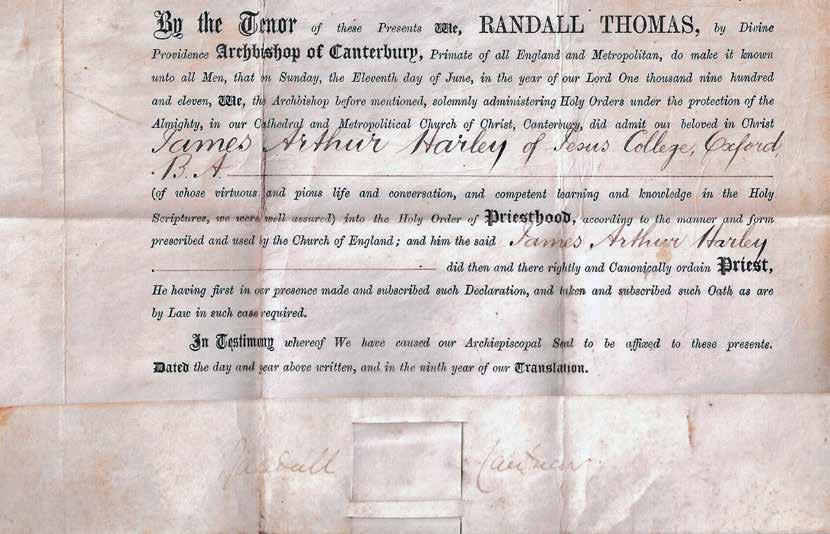 By the Tenor of these Presents We, RANDALL THOMAS, by Divine
Providence Archbishop of Canterbury, Primate of all England and Metropolitan, do make it known
unto all Men, that on Sunday, the Eleventh day of June, in the year of our Lord One thousand nine hundred
and eleven, We, the Archbishop before mentioned, solemnly administering Holy Orders under the protection of the
Almighty, in our Cathedral and Metropolitical Church of Christ, Canterbury, did admit our beloved in Christ
James Arthur Harley of Jesus College, Oxford,
B.A.
(of whose virtuous and pious life and conversation, and competent learning and knowledge in the Holy
Scriptures, we were well assured) into the Holy Order of Priesthood, according to the manner and form
prescribed and used by the Church of England; and him the said James Arthur Harley
did then and there rightly and Canonically ordain Priest,
He having first in our presence made and subscribed such Declaration, and taken and subscribed such Oath as are
by Law in such case required.
In Testimony whereof We have caused our Archiepiscopal Seal to be affixed to these presents.
Dated the day and year above written, and in the ninth year of our Translation.
Randall Cantuar